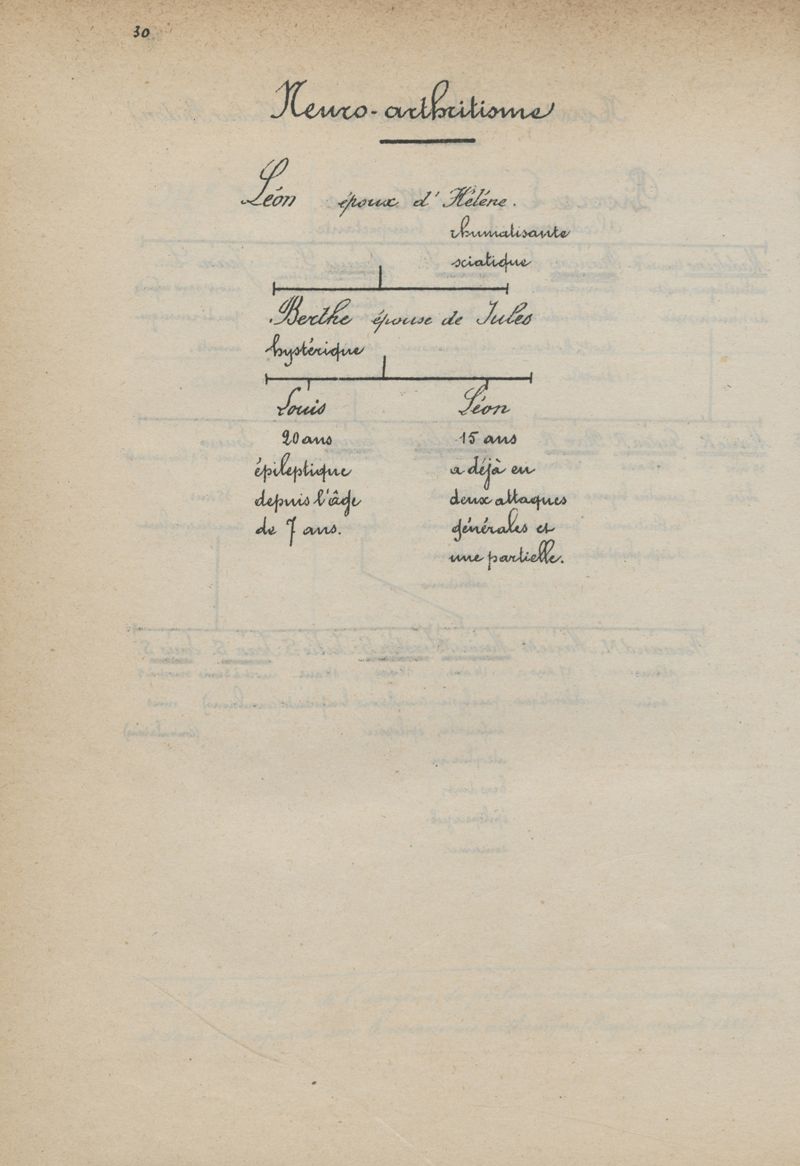 30
Neuro-arthritisme
Léon époux d'Hélène.
rhumatisante
sciatique
Berthe épouse de Jules
hystérique
Louis Léon
20 ans 15 ans
épileptique a déjà eu
depuis l'âge deux attaques
de 7 ans. générales et
une partielle.